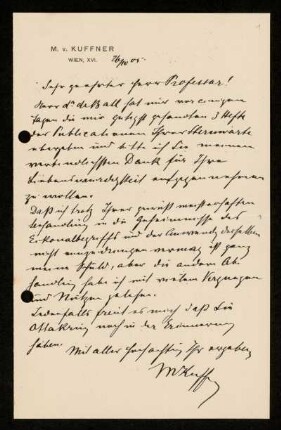 M. v. KUFFNER
WIEN, XVI. 26/10 05
Sehr geehrter Herr Professor!
Herr Dr. de Ball hat mir vor einigen
Tagen die mir gütigst gesandten 3 Hefte
der Publicationen Ihrer Sternwarte
übergeben und bitte ich Sie meinen
verbindlichsten Dank für Ihre
Liebenswürdigkeit entgegennehmen
zu wollen.
Daß ich trotz Ihrer gewiß meisterhaften
Behandlung in die Geheimnisse des
Eikonalbegriffs und der Anwendg desselben
nicht einzudringen vermag ist ganz
meine Schuld, aber die andern Ab-
handlgen habe ich mit vielem Vergnügen
und Nutzen gelesen.
Jedenfalls freut es mich daß Sie
Ottakring noch in der Erinnerung
haben.
Mit aller Hochachtung Ihr ergebener
MKuffner